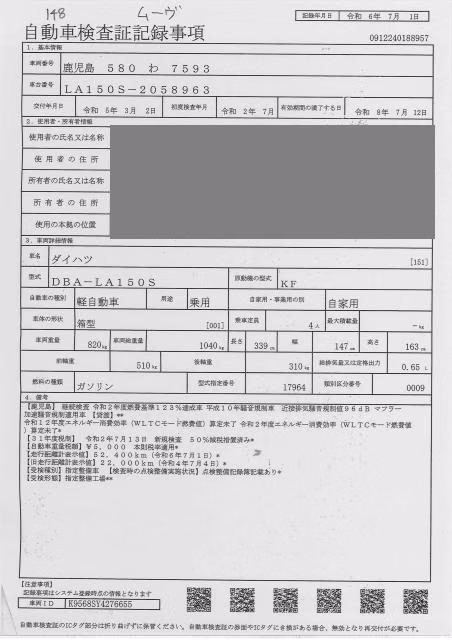 148 ムーヴ
記録年月日 令和 6年 7月 1日
自動車検査証記録事項
0912240188957
1. 基本情報
車両番号 鹿児島 580 わ 7593
車台番号 LA150S-2058963
交付年月日 令和 5年 3月 2日 初度検査年月 令和 2年 7月 有効期間の満了する日 令和 8年 7月 12日
2. 使用者・所有者情報
使用者の氏名又は名称
使用者の住所
所有者の氏名又は名称
所有者の住所
使用の本拠の位置
3. 車両詳細情報
車名 ダイハツ [151]
型式 DBA-LA150S 原動機の型式 KF
自動車の種別 軽自動車 用途 乗用 自家用・事業用の別 自家用
車体の形状 箱型 [001] 乗車定員 4人 最大積載量 -kg
車両重量 820kg 車両総重量 1040kg 長さ 339cm 幅 147cm 高さ 163cm
前軸重 510kg 後軸重 310kg 総排気量又は定格出力 0.65 L
燃料の種類 ガソリン 型式指定番号 17964 類別区分番号 0009
4. 備考
【鹿児島】 継続検査 令和2年度燃費基準123%達成車 平成10年騒音規制車 近接排気騒音規制値96dB マフラー
加速騒音規制適用車 【貸渡】**
令和12年度エネルギー消費効率(WLTCモード燃費値)算定未了 令和2年度エネルギー消費効率(WLTCモード燃費値
)算定未了*
【31年度税制】 令和2年7月13日 新規検査 50%減税措置済み*
【自動車重量税額】¥5,000 本則税率適用*
【走行距離計表示値】52,400km(令和6年7月1日)*
【旧走行距離計表示値】22,000km(令和4年7月4日)*
【受検種別】指定整備車 【検査時の点検整備実施状況】点検整備記録簿記載あり*
【受検形態】指定整備工場**
【注意事項】
記録事項はシステム登録時点の情報となります
車両ID K9568SY4276655
自動車検査証のICタグ部分は折り曲げずに保管ください。自動車検査証の券面やICタグに毀損がある場合、無効となり再交付が必要です。